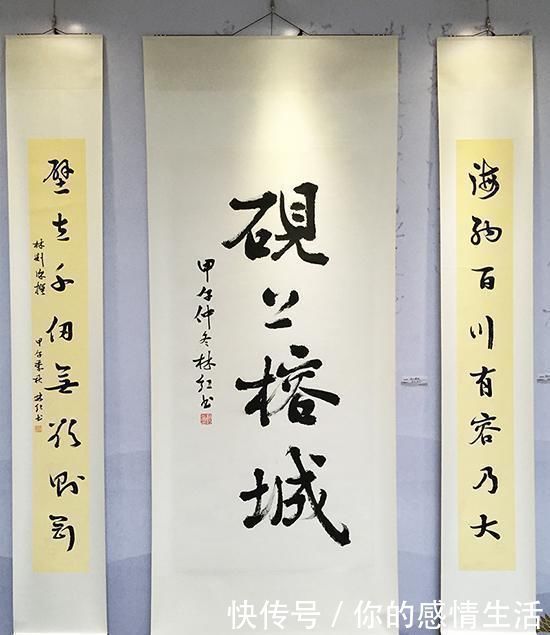 海納百川有容乃大
硯上榕城
甲午仲冬林红书
壁立千仞無欲則剛
林則徐
甲午季秋 林红书
快传号 / 你的感情生活